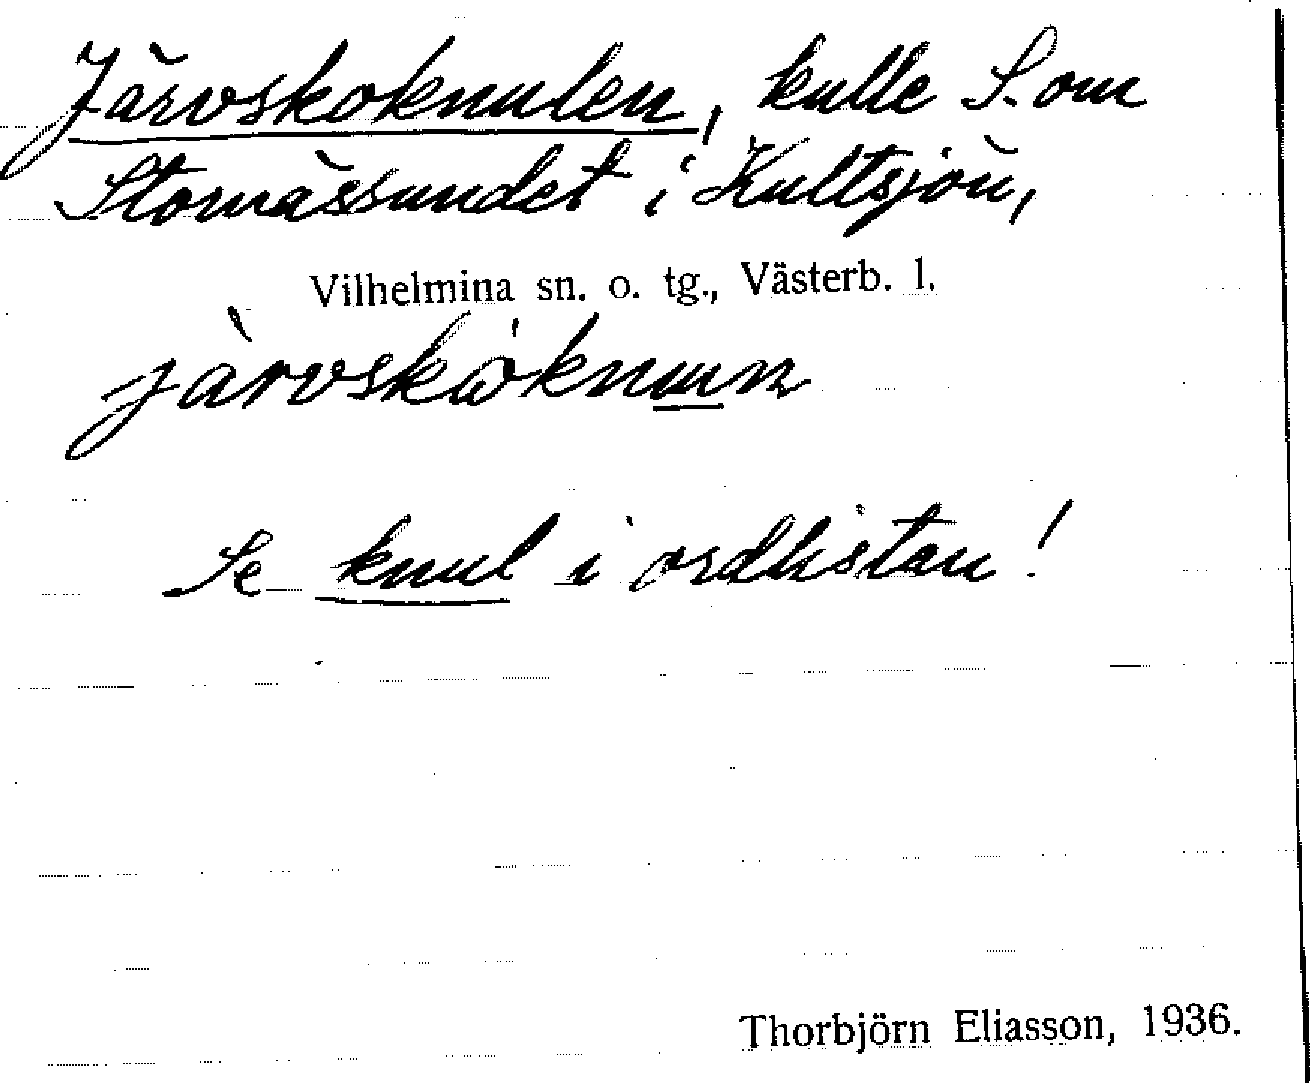 Järvskoknulen, kulle S. om
Stornässundet i Kultsjön,
Vilhelmina sn. o. tg., Västerb. l.
Se knul i ordlistan!
Thorbjörn Eliasson, 1936.